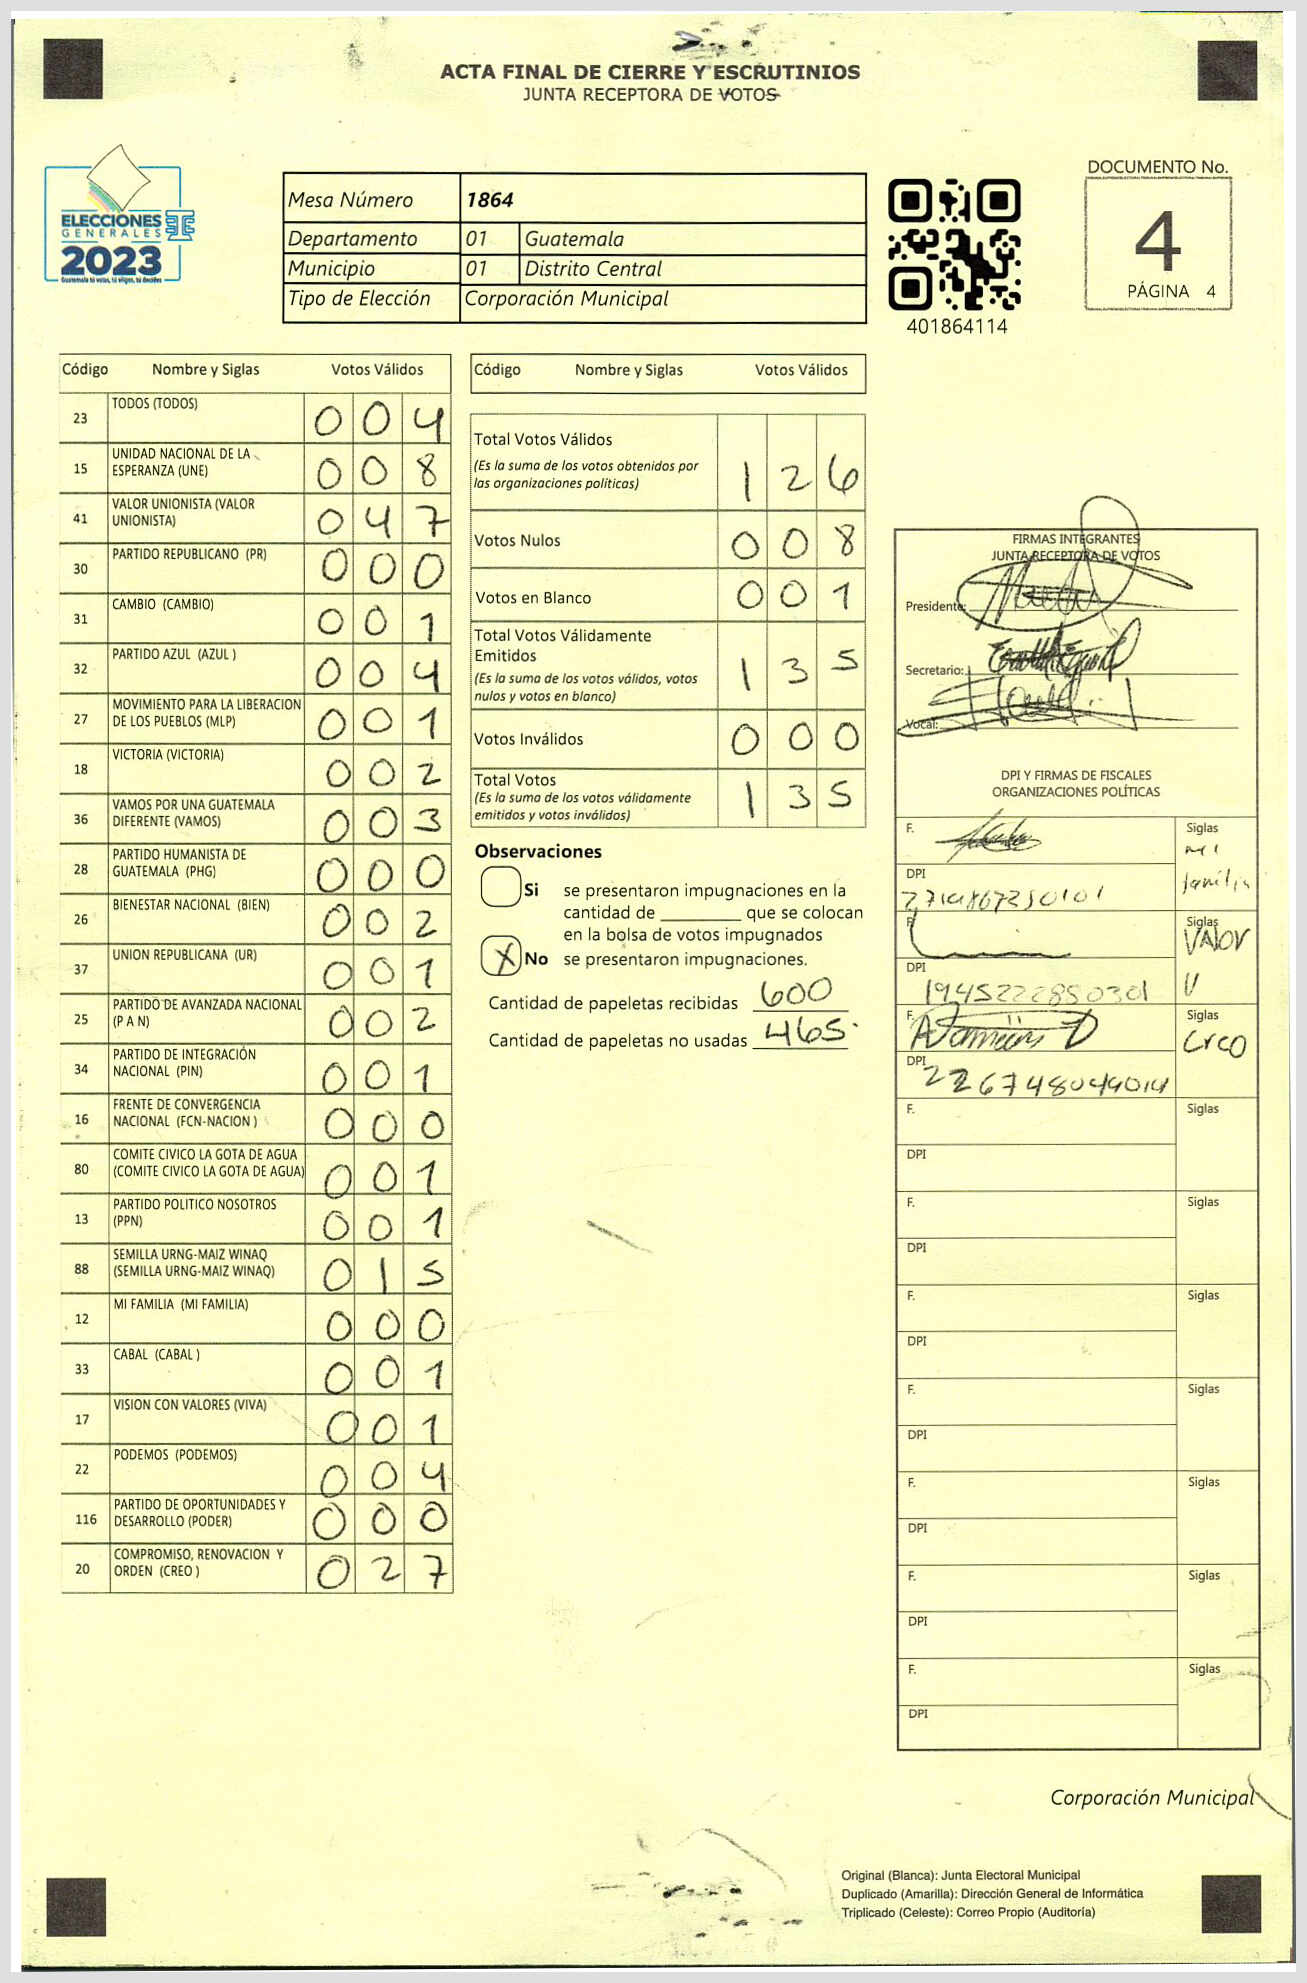 ACTA FINAL DE CIERRE Y ESCRUTINIOS
JUNTA RECEPTORA DE VOTOS
ELECCIONES
GENERALES
2023
Guatemala tú votas, tú eliges, tú decides
Mesa Número 1864
Departamento 01 Guatemala
Municipio 01 Distrito Central
Tipo de Elección Corporación Municipal
401864114
DOCUMENTO No.
4
PÁGINA 4
Código Nombre y Siglas Votos Válidos
23 TODOS (TODOS) 0 0 4
15 UNIDAD NACIONAL DE LA
ESPERANZA (UNE) 0 0 8
41 VALOR UNIONISTA (VALOR
UNIONISTA) 0 4 7
30 PARTIDO REPUBLICANO (PR) 0 0 0
31 CAMBIO (CAMBIO) 0 0 1
32 PARTIDO AZUL (AZUL ) 0 0 4
27 MOVIMIENTO PARA LA LIBERACION
DE LOS PUEBLOS (MLP) 0 0 1
18 VICTORIA (VICTORIA) 0 0 2
36 VAMOS POR UNA GUATEMALA
DIFERENTE (VAMOS) 0 0 3
28 PARTIDO HUMANISTA DE
GUATEMALA (PHG) 0 0 0
26 BIENESTAR NACIONAL (BIEN) 0 0 2
37 UNION REPUBLICANA (UR) 0 0 1
25 PARTIDO DE AVANZADA NACIONAL
(P A N) 0 0 2
34 PARTIDO DE INTEGRACIÓN
NACIONAL (PIN) 0 0 1
16 FRENTE DE CONVERGENCIA
NACIONAL (FCN-NACION ) 0 0 0
80 COMITE CIVICO LA GOTA DE AGUA
(COMITE CIVICO LA GOTA DE AGUA) 0 0 1
13 PARTIDO POLITICO NOSOTROS
(PPN) 0 0 1
88 SEMILLA URNG-MAIZ WINAQ
(SEMILLA URNG-MAIZ WINAQ) 0 1 5
12 MI FAMILIA (MI FAMILIA) 0 0 0
33 CABAL (CABAL ) 0 0 1
17 VISION CON VALORES (VIVA) 0 0 1
22 PODEMOS (PODEMOS) 0 0 4
116 PARTIDO DE OPORTUNIDADES Y
DESARROLLO (PODER) 0 0 0
20 COMPROMISO, RENOVACION Y
ORDEN (CREO ) 0 2 7
Código Nombre y Siglas Votos Válidos
Total Votos Válidos
(Es la suma de los votos obtenidos por
las organizaciones políticas) 1 2 6
Votos Nulos 0 0 8
Votos en Blanco 0 0 1
Total Votos Válidamente
Emitidos
(Es la suma de los votos válidos, votos
nulos y votos en blanco) 1 3 5
Votos Inválidos 0 0 0
Total Votos
(Es la suma de los votos válidamente
emitidos y votos inválidos) 1 3 5
Observaciones
Si se presentaron impugnaciones en la
cantidad de ________ que se colocan
en la bolsa de votos impugnados
X No se presentaron impugnaciones.
Cantidad de papeletas recibidas 600
Cantidad de papeletas no usadas 465
FIRMAS INTEGRANTES
JUNTA RECEPTORA DE VOTOS
Presidente:
Secretario:
Vocal:
DPI Y FIRMAS DE FISCALES
ORGANIZACIONES POLÍTICAS
F. Siglas
mi
familia
DPI
F. Siglas
VALOR
U
DPI
1945222850301
F. Siglas
Creo
DPI
F. Siglas
DPI
F. Siglas
DPI
F. Siglas
DPI
F. Siglas
DPI
F. Siglas
DPI
F. Siglas
DPI
F. Siglas
DPI
Corporación Municipal
Original (Blanca): Junta Electoral Municipal
Duplicado (Amarilla): Dirección General de Informática
Triplicado (Celeste): Correo Propio (Auditoría)